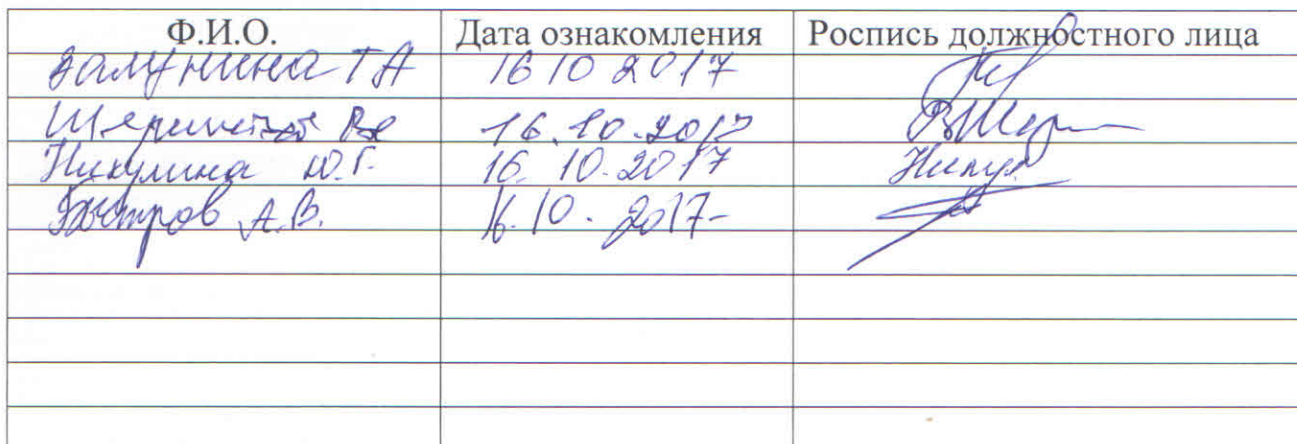 Ф.И.О. Дата ознакомления Роспись должностного лица
Залунина ТА 16 10 2017
16.10.2017
Никулина Ю.Г. 16. 10. 2017 Никул
Быстров А.В. 16.10. 2017